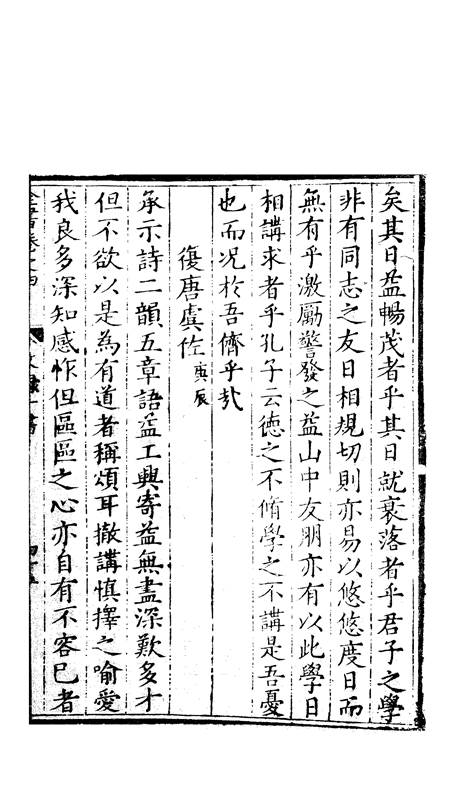 矣其日益暢茂者乎其日就衰落者乎君子之學
非有同志之友日相規切則亦易以悠悠度日而
無有乎激勵警發之益山中友朋亦有以此學日
相講求者乎孔子云德之不脩學之不講是吾憂
也而况於吾儕乎㢤
復唐虞佐庚辰
承示詩二韻五章語益工興寄益無盡深歎多才
但不欲以是為有道者稱頌耳撤講慎擇之喻愛
我良多深知感怍但區區之心亦自有不容已者